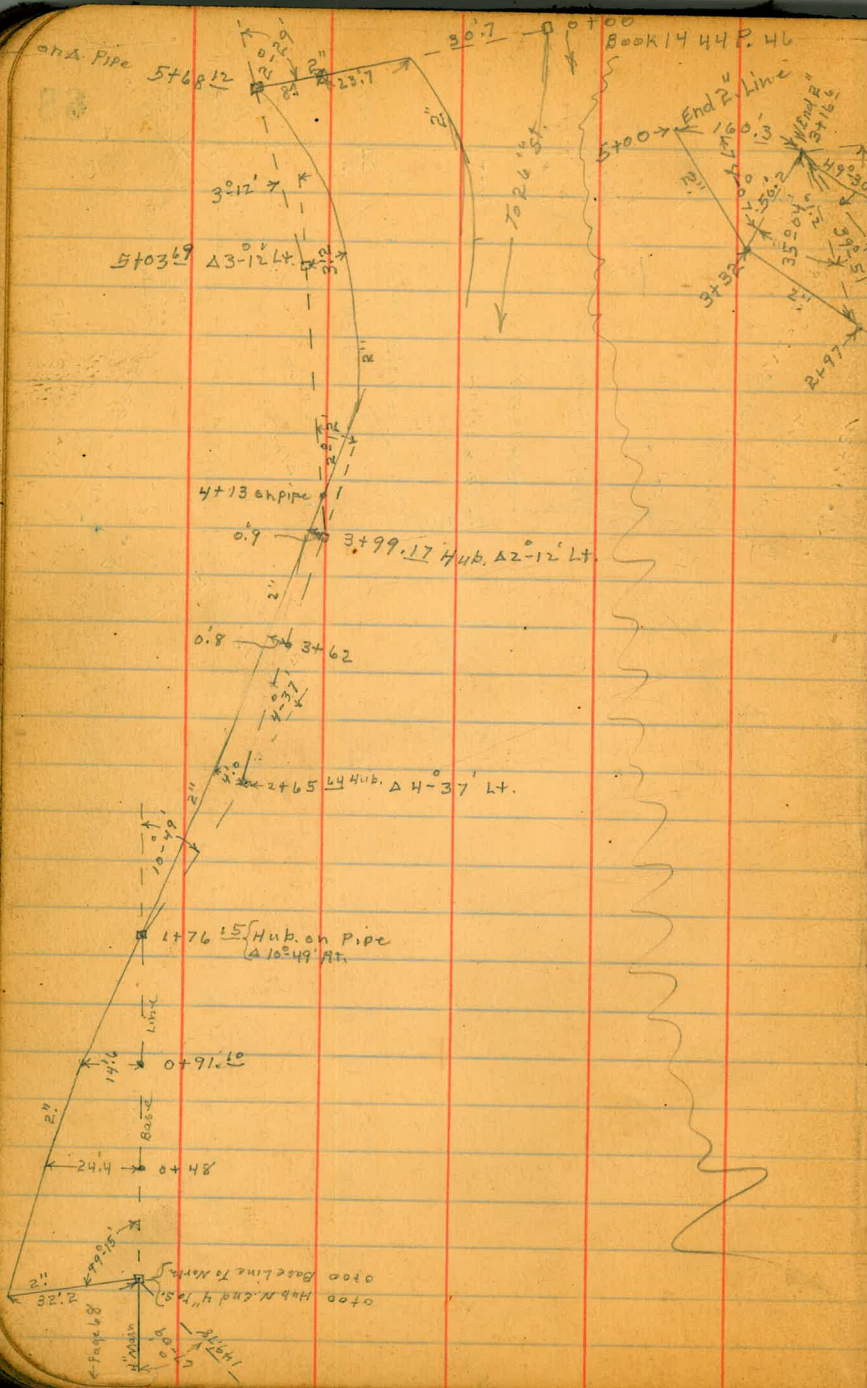 on Δ Pipe
5+68 12
2"
23'.7
30'.7
0+00
Book 1444 P. 46
2"
To 26 1/4" St.
End 2". Line
5+00
2".
160.
N End 2"
3+16
56.2
35°-04'
39°-51
3+32
2".
2+97
3°-12'
5+03 69 Δ 3°-12' Lt.
3.2
2"
2°-12'
4+13 on pipe
0'.9
3+99.17 Hub. Δ 2°-12' Lt.
2"
0'.8
3+62
4°-37'
4'.0
2+65 64 Hub. Δ 4°-37' Lt.
2"
10°-49'
1+76 15 { Hub. on Pipe
Δ 10°-49' Rt.
Line
14'.6
0+91.10
2".
Base
24.4
0+48
79°-15'
0+00 Base Line To North
0+00 Hub N. End 4" To S.
2".
32'.2
← Page 68
4" Main
149.78